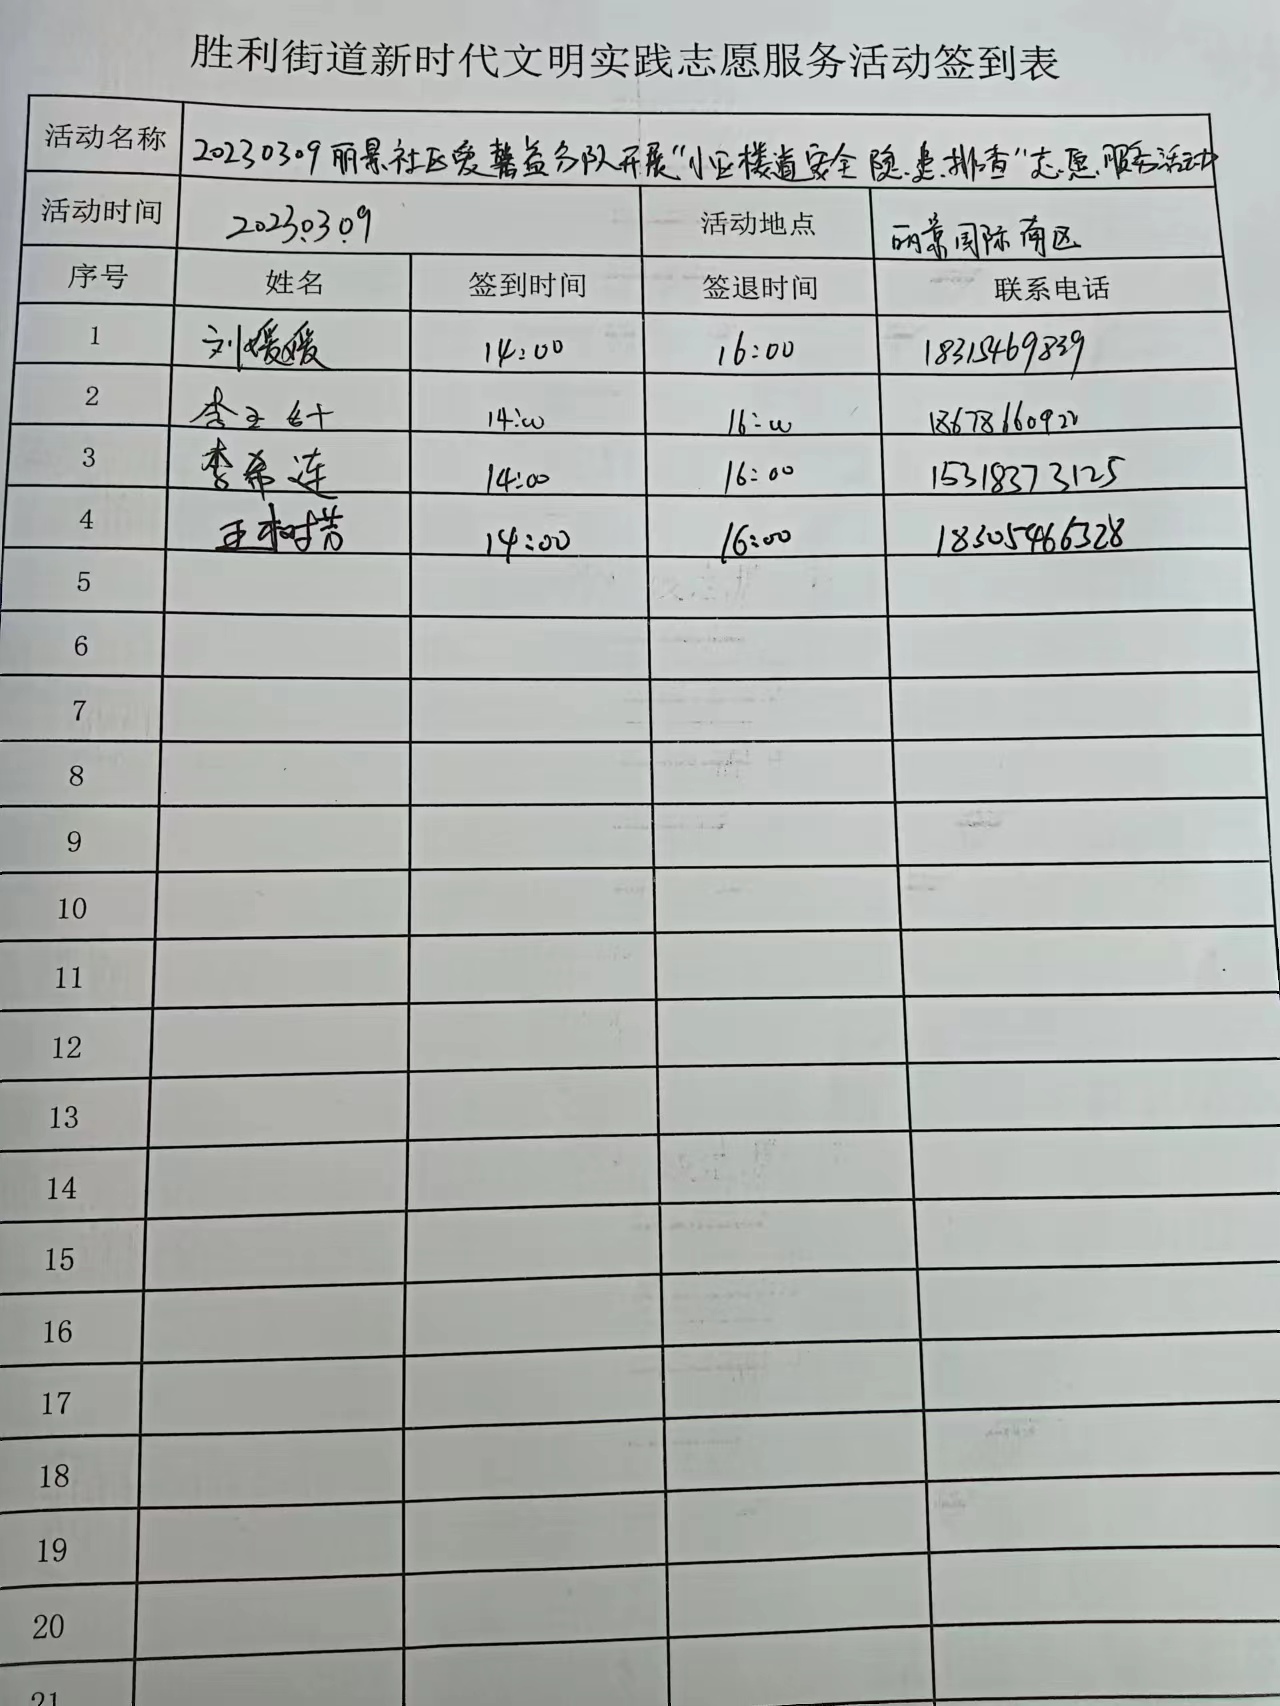 胜利街道新时代文明实践志愿服务活动签到表
活动名称 20230309丽景社区爱馨益分队开展“小区楼道安全隐患排查”志愿服务活动
活动时间 2023.03.09 活动地点 丽景国际南区
序号 姓名 签到时间 签退时间 联系电话
1 刘媛媛 14:00 16:00 18315469839
2 李玉 14:00 16:00 18678660920
3 李希连 14:00 16:00 15318373125
4 王树芳 14:00 16:00 18305466328
5
6
7
8
9
10
11
12
13
14
15
16
17
18
19
20
21